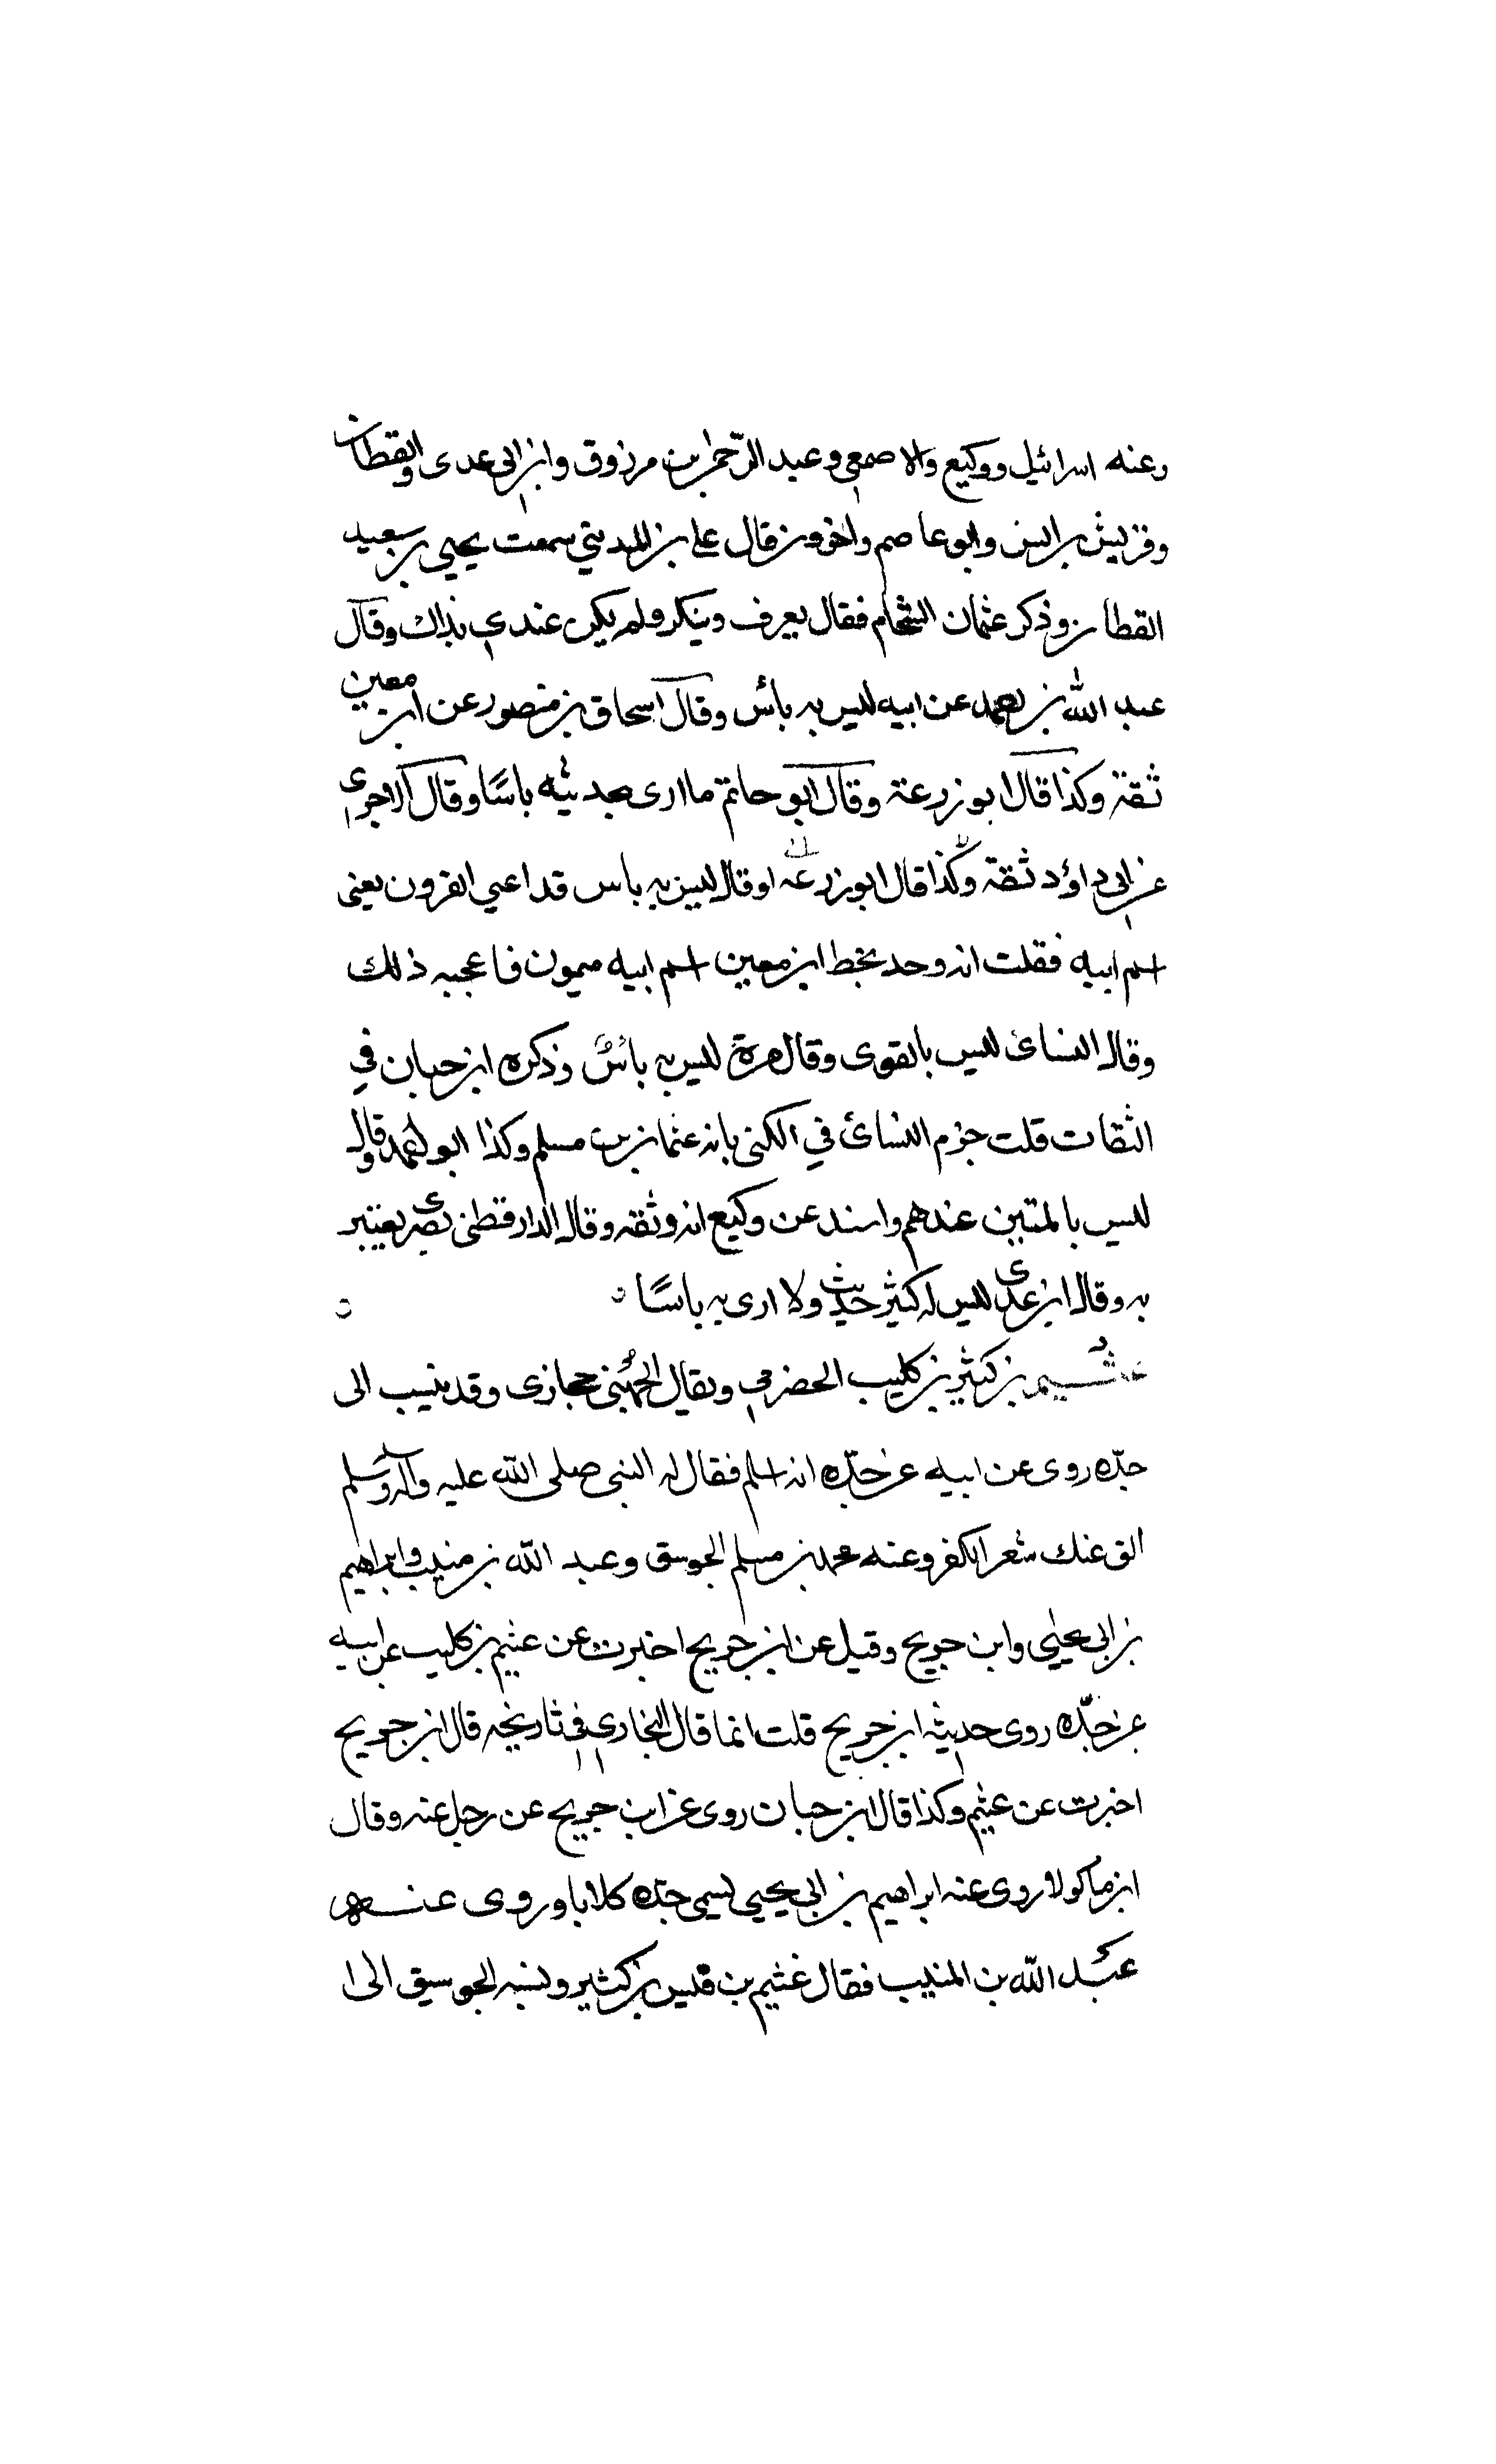 وعنه اسرائيل ووكيع والاصمعي وعبد الرّحمن بن مرزوق وابن ابي عدى والقطان
وقريش بن انس وابو عاصم واخرون قال علي بن المديني سمعت يحيي بن سعيد
القطان وذكر عثمان الشحام فقال يعرف وينكر ولم يكن عندي بذاك وقال
عبد الله بن احمد عن ابيه ليس به بأس وقال اسحاق بن منصور عن ابن معين
ثقة وكذا قال ابو زرعة وقال ابو حاتم ما ارى بحديثه باسًا وقال الاجرى
عن ابي داؤد ثقة وكذا قال ابو زرعه او قال ليس به باس قد اعيي القرون يعنى
اسم ابيه فقلت انه وجد بخط ابن معين اسم ابيه ميمون فاعجبه ذلك
وقال النسائ ليس بالقوى وقال مرة ليس به باسٌ وذكره ابن حبان في
الثقات قلت جزم النسائ في الكنى بانه عثمان بن مسلم وكذا ابو احمد وقال
ليس بالمتين عندهم واسند عن وكيع انه وثقه وقال الدارقطنى بصرى يعتبر
به وقال ابن عدى ليس له كثير حديث ولا ارى به باسًا
عثيم بن كثير بن كليب الحضرمي ويقال الجُهنى حجازى وقد ينسب الى
جدّه روى عن ابيه عن جدّه انه اسلم فقال له النبى صلى الله عليه وآله وسلم
الق عنك شعر الكفر وعنه محمد بن مسلم الجوسق وعبد الله بن منيب وابراهيم
بن ابى يحيى وابن جريج وقيل عن ابن جريج اخبرت عن عثيم بن كليب عن ابيه
عن جدّه روى حديثه ابن جريج قلت انما قال البخارى في تاريخه قال ابن جريج
اخبرت عن عثيم وكذا قال ابن حبان روى عن ابن جريج عن رجل عنه وقال
ابن ماكولا روى عنه ابراهيم بن ابي يحيي يسمى جدّه كلابا وروى عنه
عبد الله بن المنيب فقال غثيم بن قيس بن كثير ونسبه الجوسيق الى ا